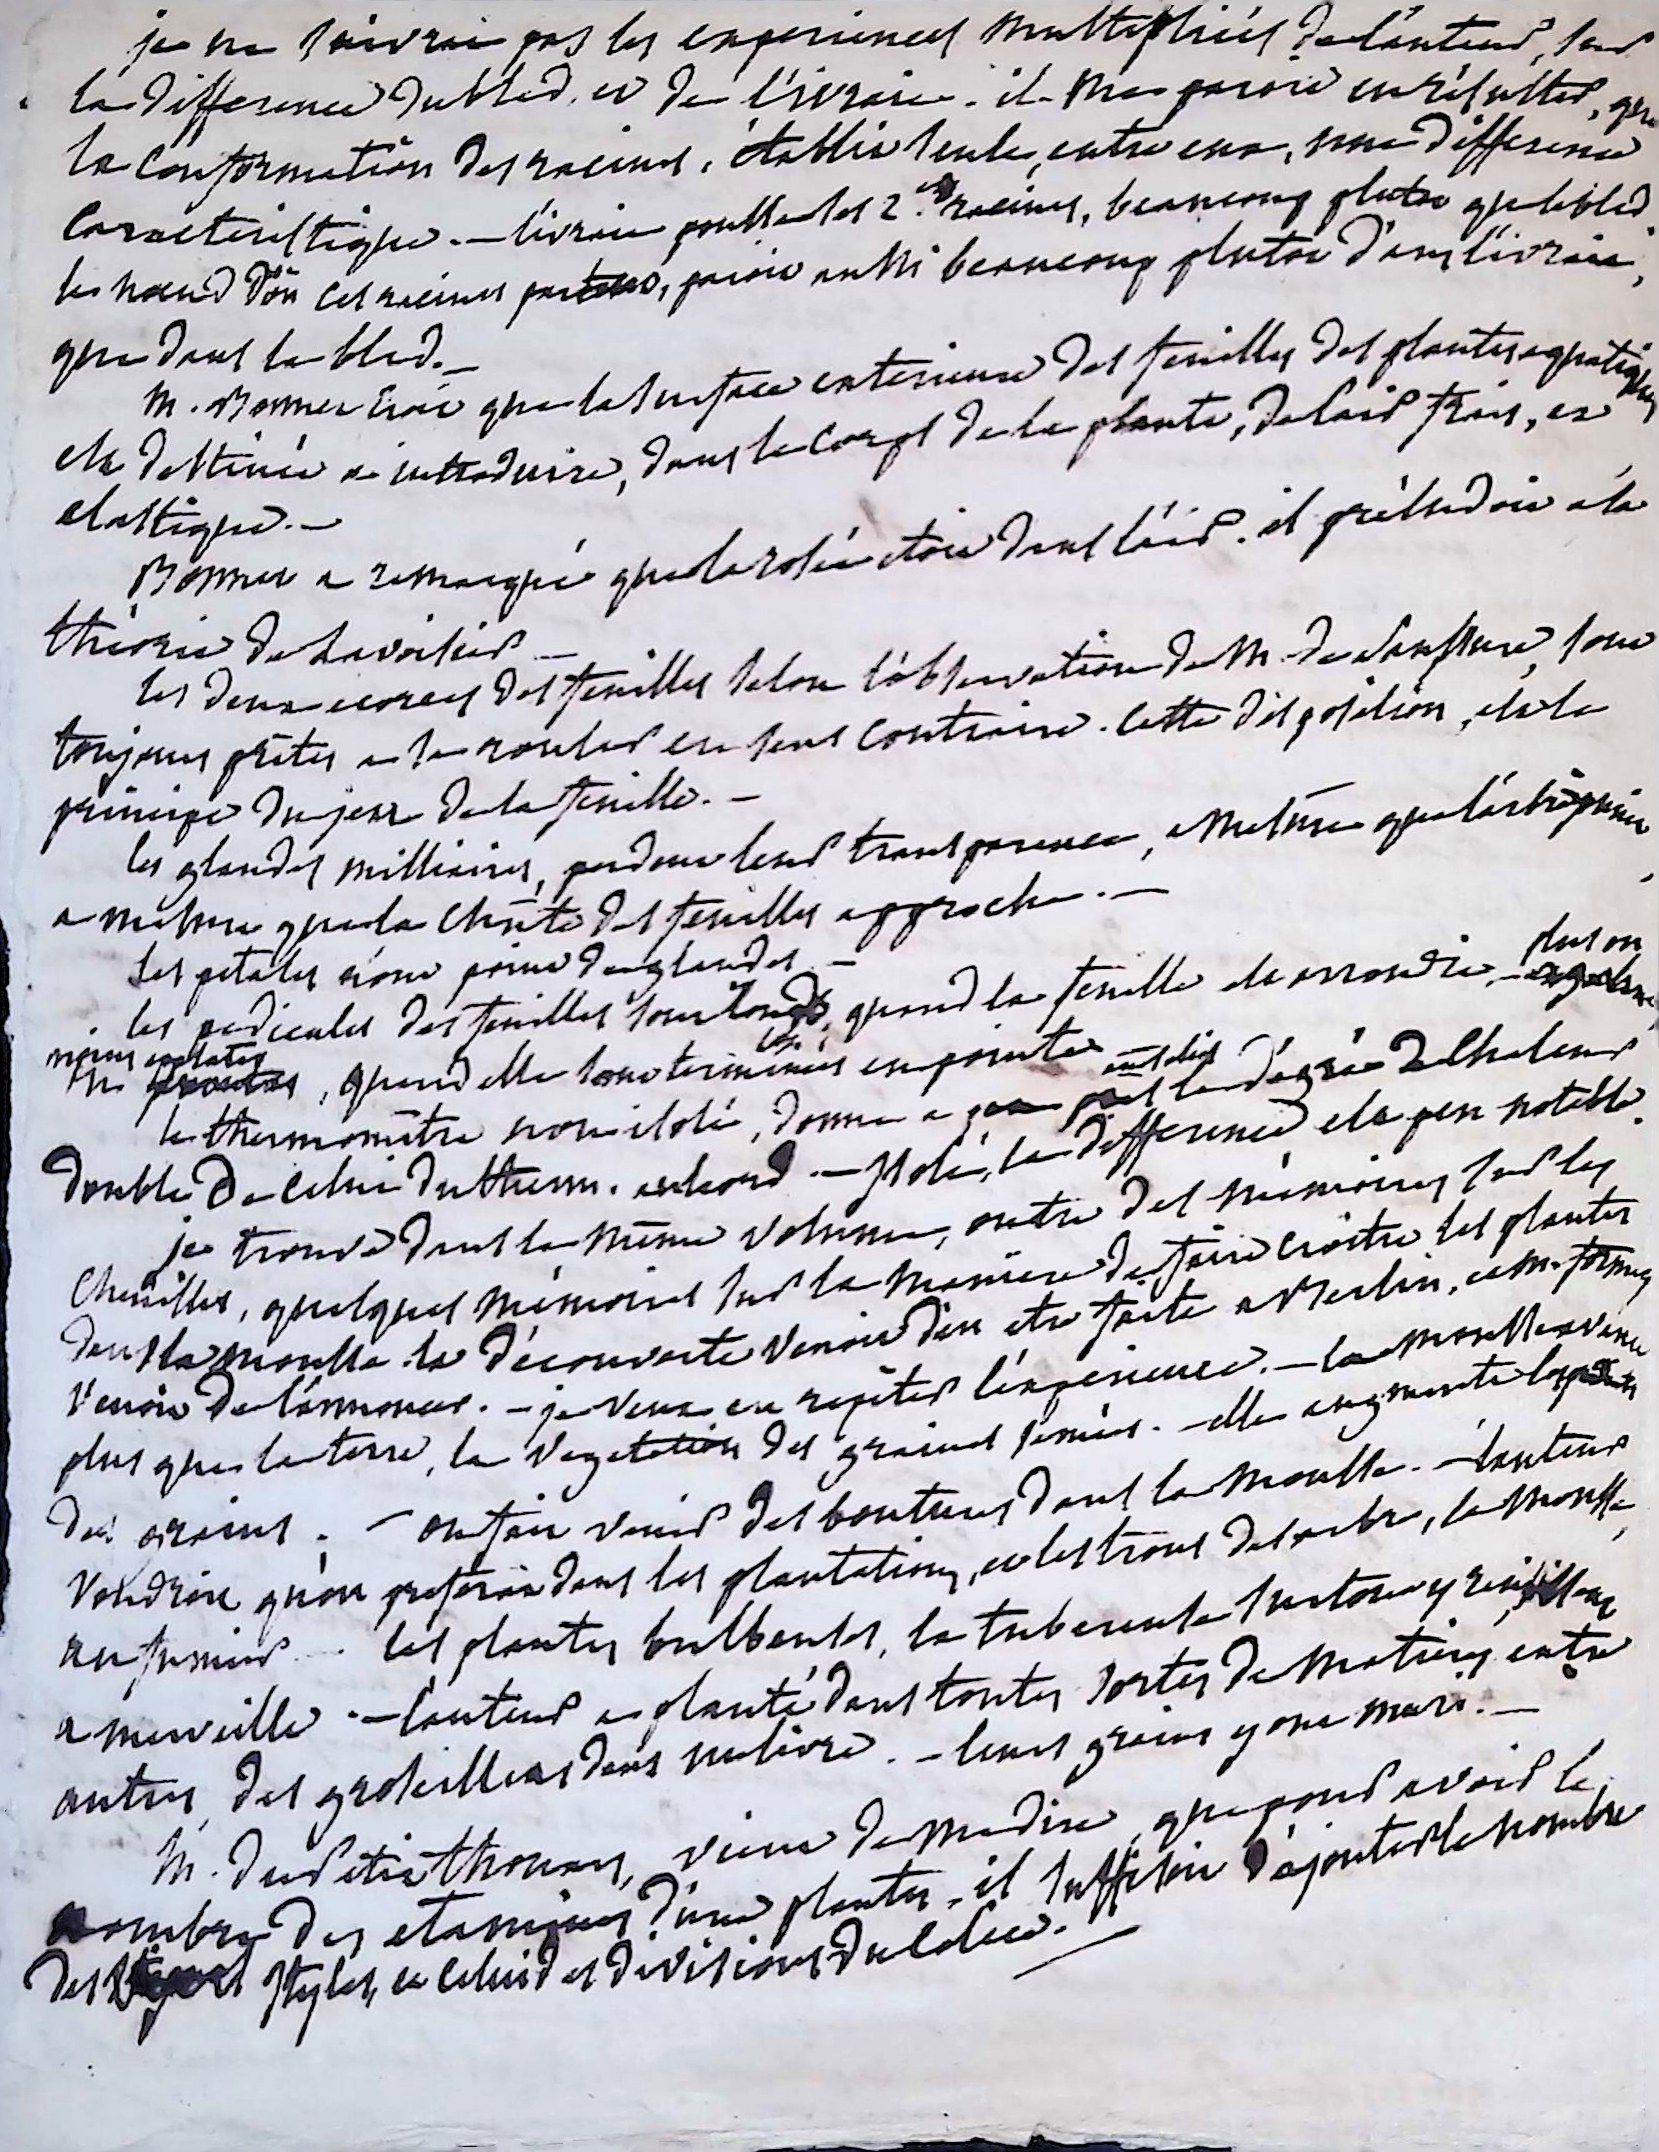 je ne suivrai pas les experiences multipliées de l'auteur, sur
la difference du bled et de l'ivraie. il me paroit en résulter, que
la conformation des racines, établit seule, entre eux, une difference
caracteristique. — l'ivraie pousse les 2.des racines, beaucoup plutot que le bled
le nœud d'où ces racines partent, paroit aussi beaucoup plutot dans l'ivraie,
que dans le bled. —
M. Bonnet croit que la surface exterieure des feuilles des plantes aquatiques
est destinée a introduire, dans le corps de la plante, de l'air frais, et
elastique. —
Bonnet a remarqué que la rosée etoit dans l'air. il préludoit a la
théorie de Lavoisier —
les deux ecorces des feuilles selon l'observation de M. de Saussure, sont
toujours prêtes a se rouler en sens contraire. cette disposition, est le
principe du jeu de la feuille. —
les glandes milliaires, perdent leur transparence, a mesure que
a mesure que la chûte des feuilles approche. —
Les petales n'ont point de glandes —
les pedicules des feuilles sont longs, quand la feuille est arrondie, — plus ou
moins, quand elle sont terminées en pointe
le thermomètre non isolé, donne a peu près le dégré de chaleur
double de celui du therm. au bord. — Isolé, la difference est peu notable.
je trouve dans le même volume, outre des mémoires sur les
Chenilles, quelques mémoires sur la maniere de faire croitre les plantes
dans la mousse. la découverte venoit d'en etre faite a Berlin, et M. formey
venoit de l'annoncer. — je veux en repéter l'experience. — la mousse avance
plus que la terre, la vegetation des graines semées. — elle augmente
des grains. — on fait venir des boutures dans la mousse. — l'auteur
voudroit qu'on préferat dans les plantations, et les trous des arbres, la mousse,
au fumier. — les plantes bulbeuses, la tubereuse surtout y réussissent
a merveille. — l'auteur a planté dans toutes sortes de matieres, entre
autres, des groseilliers dans un livre. — leurs grains y ont muri. —
M. du Petit thouars, vient de me dire, que pour avoir le
nombre des etamines d'une plante, il suffisoit d'ajouter le nombre
des styles, et celui des divisions du calice. —